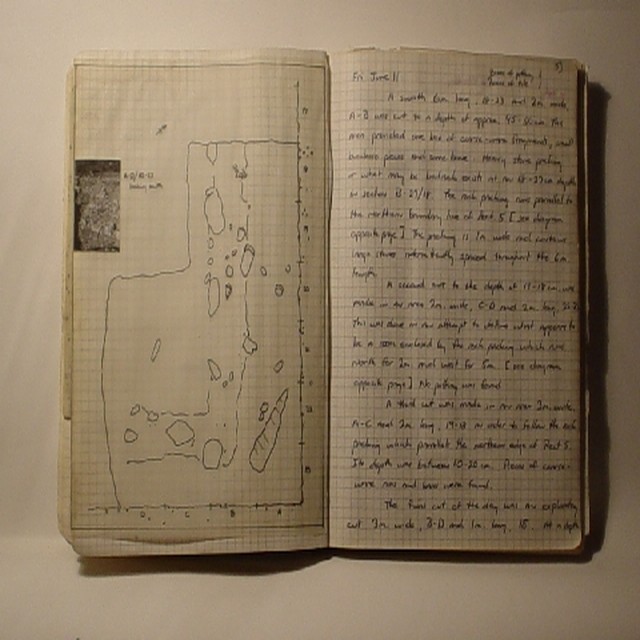 A-B/18-23
looking south
D C B A
Fri June 11
A smooth 6m long, 18-23 and 2m wide,
A-B was cut to a depth of approx. 45-50 cm. The
area provided one box of coarse-ware fragments, small
bone. Heavy stone packing
or what may be bedrock exists at 27 cm depth
in section B-23/18. The rock packing runs parallel to
the northern boundary line of Rect 5 [see diagram
opposite page] The packing is 1m wide and contains
large stones intermittently spaced throughout the 6m
length.
A second cut to the depth of 15-18 cm. was
made in an area 2m. wide, C-D and 2m long,
This was done in an attempt to define what appears to
be a room enclosed by the rock packing which runs
north for 2m and west for 5m. [see diagram
opposite page] No packing was found.
A third cut was made in an area 3m wide,
A-C and 2m long, 19-18 in order to follow the rock
packing which parallels the northern edge of Rect 5.
Its depth was between 10-20 cm. Pieces of coarse-
ware and were found.
The final cut of the day was an exploratory
cut 3m wide, B-D and 1m long, 18. At a depth